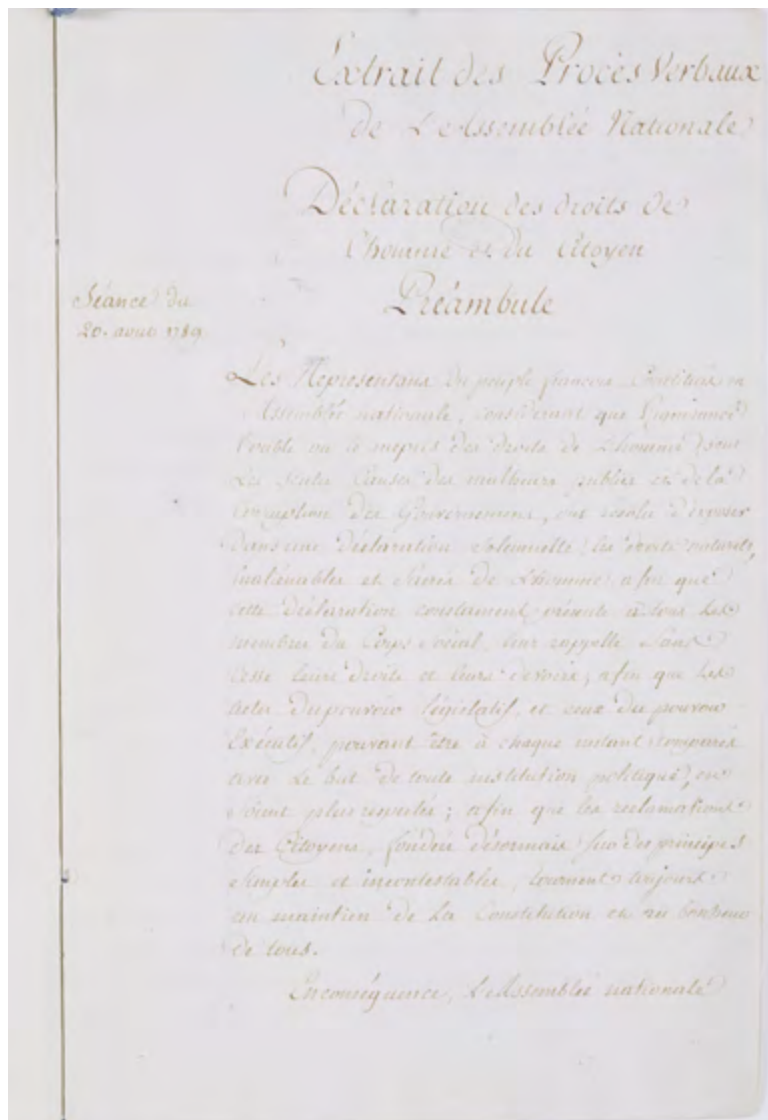 Extrait des Procès Verbaux
de L'Assemblée Nationale
Déclaration des droits de
l'homme et du Citoyen
Préambule
Séance du
20. aout 1789
Les Representans du peuple françois constitués en
Assemblée nationale, considerant que l'ignorance
l'oubli ou le mepris des droits de L'homme sont
Les seules Causes des malheurs publics et de la
Corruption des Gouvernemens, ont résolu d'exposer
dans une déclaration solemnelle les droits naturels,
inaliénables et sacrés de L'homme afin que
cette déclaration constament présente à tous Les
membres du Corps social, leur rappelle sans
cesse leurs droits et leurs devoirs; afin que Les
actes du pouvoir législatif, et ceux du pouvoir
Exécutif, pouvant être à chaque instant comparés
avec Le but de toute institution politique, en
soient plus respectés; afin que les reclamations
des Citoyens, fondées désormais sur des principes
simples et incontestables, tournent toujours
au maintien de La Constitution et au bonheur
de tous.
En conséquence, L'Assemblée nationale